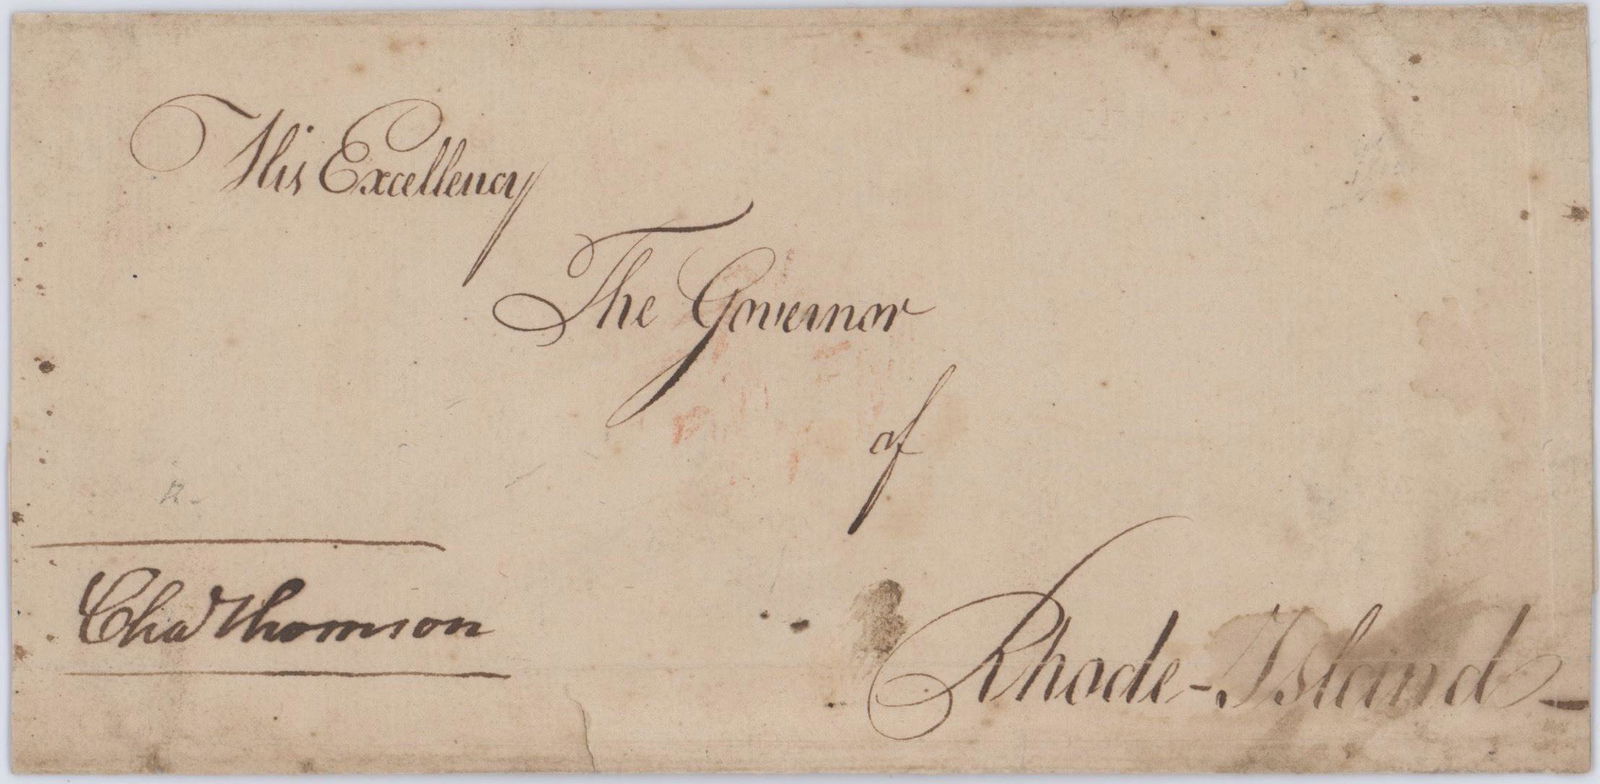 His Excellency
The Governor
of
Rhode-Island-
Cha^s Thomson